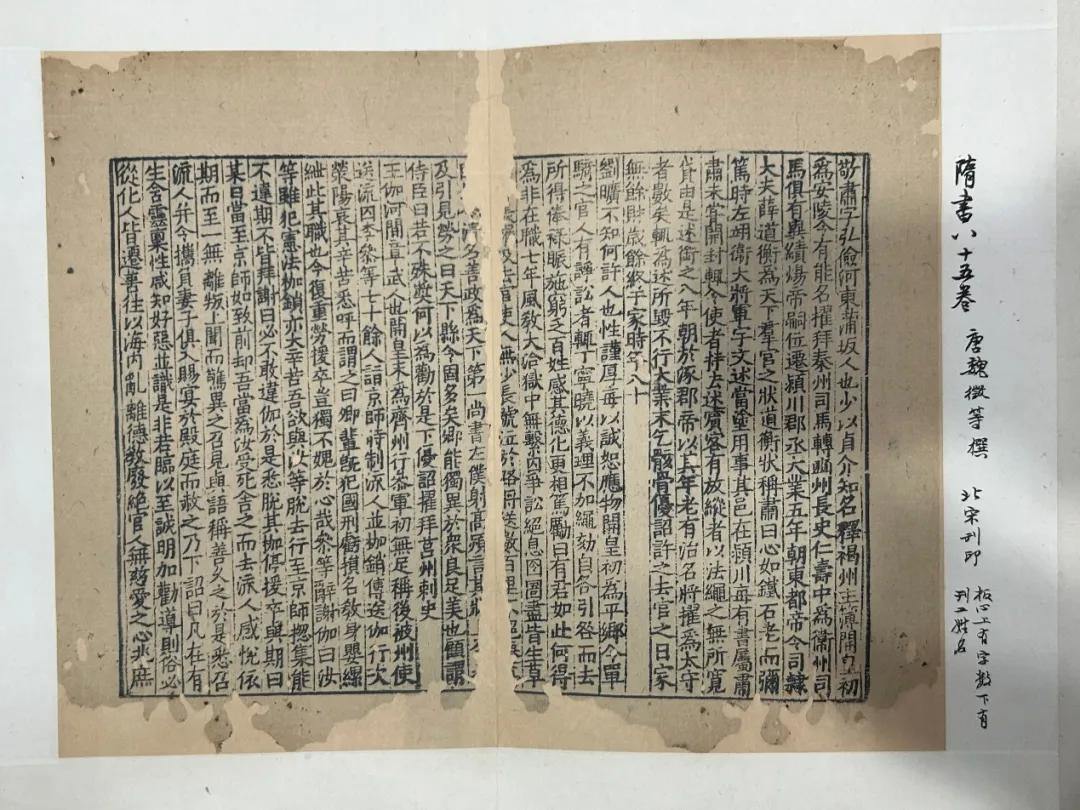 隋書八十五卷 唐魏徵等撰 北宋刊印
板心上有字數下有
刊工姓名
敬肅字弘儉河東蒲坂人也少以貞介知名釋褐州主簿開皇初
爲安陵令有能名擢拜秦州司馬轉豳州長史仁壽中爲衛州司
馬俱有異績煬帝嗣位遷潁川郡丞大業五年朝東都帝令司隸
大夫薛道衡爲天下羣官之狀道衡狀稱肅曰心如鐵石老而彌
篤時左翊衛大將軍宇文述當塗用事其邑在潁川每有書屬肅
肅未嘗開封輒令使者持去述賓客有放縱者以法繩之無所寬
貸由是述銜之八年朝於涿郡帝以其年老有治名將擢爲太守
者數矣輒爲述所毀不行大業末乞骸骨優詔許之去官之日家
無餘財歲餘終于家時年八十
劉曠不知何許人也性謹厚每以誠恕應物開皇初爲平鄉令單
騎之官人有諍訟者輒丁寧曉以義理不加繩劾自各引咎而去
所得俸祿賑施窮乏百姓感其德化更相篤勵曰有君如此何得
爲非在職七年風敎大洽獄中無繫囚爭訟絕息囹圄盡皆生草
及去官吏人無少長號泣於路將送數百里不絕
清名善政爲天下第一尚書左僕射高熲言其狀
及引見勞之曰天下縣令固多矣卿能獨異於衆良足美也顧謂
侍臣曰若不殊獎何以爲勸於是下優詔擢拜莒州刺史
王伽河間章武人也開皇末爲齊州行參軍初無足稱後被州使
送流囚李參等七十餘人詣京師時制流人並枷鎖傳送伽行次
滎陽哀其辛苦悉呼而謂之曰卿輩旣犯國刑虧損名敎身嬰縲
紲此其職也今復重勞援卒豈獨不媿於心哉參等辭謝伽曰汝
等雖犯憲法枷鎖亦大辛苦吾欲與汝等脫去行至京師摠集能
不違期不皆拜謝曰必不敢違伽於是悉脫其枷停援卒與期曰
某日當至京師如致前却吾當爲汝受死舍之而去流人感悅依
期而至一無離叛上聞而驚異之召見與語稱善久之於是悉召
流人并令攜負妻子俱入賜宴於殿庭而赦之乃下詔曰凡在有
生含靈禀性咸知好惡並識是非若臨以至誠明加勸導則俗必
從化人皆遷善往以海內亂離德敎廢絕官人無慈愛之心兆庶